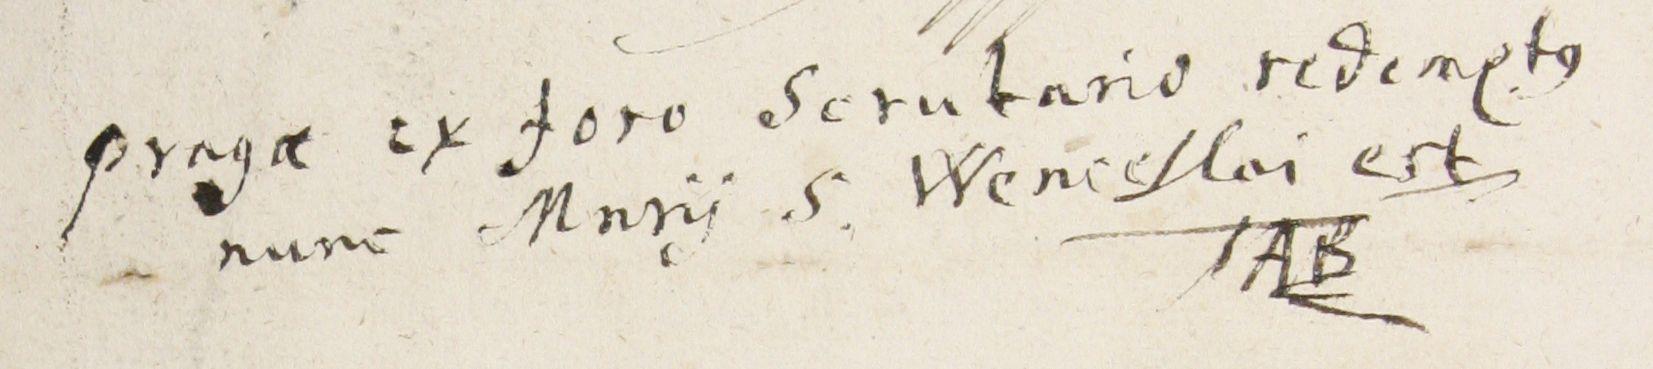 pragæ ex foro Scrutario redemptꝯ
nunc Mnrÿ S. Wenceslai est
IAB